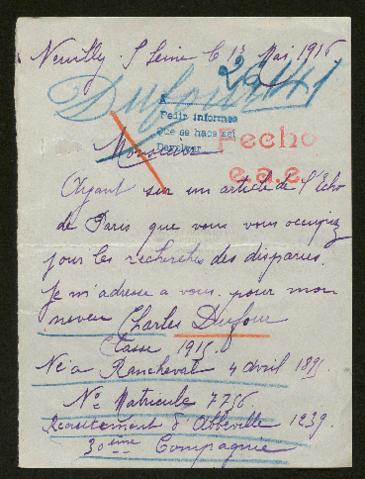 Neuilly s/ Seine le 13 Mai 1916
Dufour
A
Pedir informes
Que se haga así
Devolver
Fecho
e.a.e.
Monsieur
Ayant su un article de l'Echo
de Paris que vous vous occupiez
pour les recherches des disparus.
Je m'adresse a vous pour mon
neveu Charles Dufour
Classe 1915
Né a Rancheval 4 avril 1895
No Matricule 7756
Recrutement d'Abbeville 1239.
30ème Compagnie